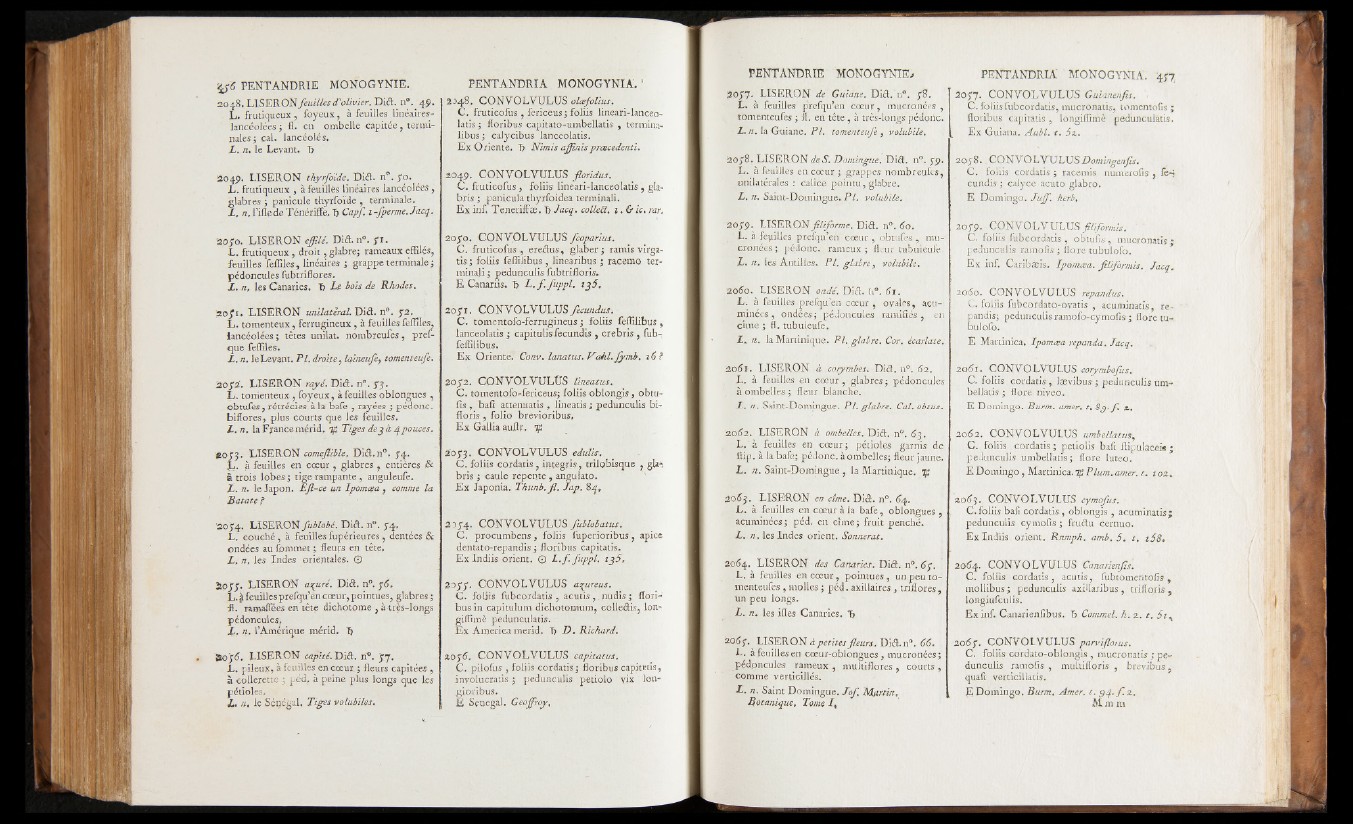 456 PENTANDRIE MONOGYNIE.
2048. LISERON feuilles d'olivier. Dict. n°. 49.
L. frutiqueux, soyeux, à feuilles linéaires-
lancéolées; fl. en ombelle capitée, termi-
nales; cal. lancéolés.
L. n. le Levant. ♄
2049. LISERON thyrsoïde. Dict. n°. 50.
L. frutiqueux, à feuilles linéaires lancéolées,
glabres; panicule thyrsoïde, terminale.
L. n. l'isle de Ténériffe. ♄ Caps. 1-sperme. Jacq.
2050. LISERON effilé. Dict. n°. 51.
L. frutiqueux, droit, glabre; rameaux effilés,
feuilles sessiles, linéaires; grappe terminale;
pédoncules subtriflores.
L. n. les Canaries. ♄ Le bois de Rhodes.
2051. LISERON unilatéral. Dict. n°. 52.
L. tomenteux, ferrugineux, à feuilles sessiles,
lancéolées; têtes unilat. nombreuses, pres-
que sessiles.
L. n. le Levant. Pl. droite, laineuse, tomenteuse.
2052. LISERON rayé. Dict. n°. 53.
L. tomenteux, soyeux, à feuilles oblongues,
obtuses, rétrécies à la base, rayées; pédonc.
biflores, plus courts que les feuilles.
L. n. la France mérid. ♃ Tiges de 3 à 4 pouces.
2053. LISERON comestible. Dict. n°. 54.
L. à feuilles en cœur, glabres, entières &
à trois lobes; tige rampante, anguleuse.
L. n. le Japon. Est-ce un Ipomœa, comme la
Batate?
2054. LISERON sublobé. Dict. n°. 54.
L. couché, à feuilles supérieures, dentées &
ondées au sommet; fleurs en tête.
L. n. les Indes orientales. ☉
2055. LISERON azuré. Dict. n°. 56.
L. à feuilles presqu'en cœur, pointues, glabres;
fl. ramassées en tête dichotome, à très-longs
pédoncules.
L. n. l'Amérique mérid. ♄
2056. LISERON capité. Dict. n°. 57.
L. pileux, à feuilles en cœur; fleurs capitées,
à collerette; péd. à peine plus longs que les
pétioles.
L. n. le Sénégal. Tiges volubiles.
PENTANDRIA MONOGYNIA.
2048. CONVOLVULUS oleæfolius.
C. fruticosus, sericeus; foliis lineari-lanceo-
latis; floribus capitato-umbellatis, termina-
libus; calycibus lanceolatis.
Ex Oriente. ♄ Nimis affinis præcedenti.
2049. CONVOLVULUS floridus.
C. fruticosus, foliis lineari-lanceolatis, gla-
bris; panicula thyrsoidea terminali.
Ex inf. Teneriffæ. ♄ Jacq. collect. 1. & ic. rar.
2050. CONVOLVULUS scoparius.
C. fruticosus, erectus, glaber; ramis virga-
tis; foliis sessilibus, linearibus; racemo ter-
minali; pedunculis subtrifloris.
E Canariis. ♄ L. f. suppl. 135.
2051. CONVOLVULUS secundus.
C. tomentoso-ferrugineus; foliis sessilibus,
lanceolatis; capitulis secundis, crebris, sub-
sessilibus.
Ex Oriente. Conv. lanatus. Vahl. symb. 16?
2052. CONVOLVULUS lineatus.
C. tomentoso-sericeus; foliis oblongis, obtu-
sis, basi attenuatis, lineatis; pedunculis bi-
floris, folio brevioribus.
Ex Gallia austr. ♃
2053. CONVOLVULUS edulis.
C. foliis cordatis, integris, trilobisque, gla-
bris; caule repente, angulato.
Ex Japonia. Thunb. fl. Jap. 84.
2054. CONVOLVULUS sublobatus.
C. procumbens, foliis superioribus, apice
dentato-repandis; floribus capitatis.
Ex Indiis orient. ☉ L. f. suppl. 135.
2055. CONVOLVULUS azureus.
C. foliis subcordatis, acutis, nudis; flori-
bus in capitulum dichotomum, collectis, lon-
gissimè pedunculatis.
Ex America merid. ♄ D. Richard.
2056. CONVOLVULUS capitatus.
C. pilosus, foliis cordatis; floribus capitatis,
involucratis; pedunculis petiolo vix lon-
gioribus.
E Senegal. Geoffroy.
PENTANDRIE MONOGYNIE.
2057. LISERON de Guiane. Dict. n°. 58.
L. à feuilles presqu'en cœur, mucronées,
tomenteuses; fl. en tête, à très-longs pédonc.
L. n. la Guiane. Pl. tomenteuse, volubile.
2058. LISERON de S. Domingue. Dict. n°. 59.
L. à feuilles en cœur; grappes nombreuses,
unilatérales: calice pointu, glabre.
L. n. Saint-Domingue. Pl. volubile.
2059. LISERON filiforme. Dict. n°. 60.
L. à feuilles presqu'en cœur, obtuses, mu-
cronées; pédonc. rameux; fleur tubuleuse.
L. n. les Antilles. Pl. glabre, volubile.
2060. LISERON ondé. Dict. n°. 61.
L. à feuilles presqu'en cœur, ovales, acu-
minées, ondées; pédoncules ramifiés, en
cime; fl. tubuleuse.
L. n. la Martinique. Pl. glabre. Cor. écarlate.
2061. LISERON à corymbes. Dict. n°. 62.
L. à feuilles en cœur, glabres; pédoncules
à ombelles; fleur blanche.
L. n. Saint-Domingue. Pl. glabre. Cal. obtus.
2062. LISERON à ombelles. Dict. n°. 63.
L. à feuilles en cœur; pétioles garnis de
stip. à la base; pédonc. à ombelles; fleur jaune.
L. n. Saint-Domingue, la Martinique. ♃
2063. LISERON en cîme. Dict. n°. 64.
L. à feuilles en cœur à la base, oblongues,
acuminées; péd. en cîme; fruit penché.
L. n. les Indes orient. Sonnerat.
2064. LISERON des Canaries. Dict. n°. 65.
L. à feuilles en cœur, pointues, un peu to-
menteuses, molles; péd. axillaires, triflores,
un peu longs.
L. n. les isles Canaries. ♄
2065. LISERON à petites fleurs. Dict. n°. 66.
L. à feuilles en cœur-oblongues, mucronées;
pédoncules rameux, multiflores, courts,
comme verticillés.
L. n. Saint Domingue. Jos. Martin.
Botanique. Tome I.
PENTANDRIA MONOGYNIA. 457
2057. CONVOLVULUS Guianensis.
C. foliis subcordatis, mucronatis, tomentosis;
floribus capitatis, longissimè pedunculatis.
Ex Guiana. Aubl. t. 52.
2058. CONVOLVULUS Domingensis.
C. foliis cordatis; racemis numerosis, se-
cundis; calyce acuto glabro.
E Domingo. Juss. herb.
2059. CONVOLVULUS filiformis.
C. foliis subcordatis, obtusis, mucronatis;
pedunculis ramosis; flore tubuloso.
Ex inf. Caribæis. Ipomœa. filiformis. Jacq.
2060. CONVOLVULUS repandus.
C. foliis subcordato-ovatis, acuminatis, re-
pandis; pedunculis ramoso-cymosis; flore tu-
buloso.
E Martinica. Ipomœa repanda. Jacq.
2061. CONVOLVULUS corymbosus.
C. foliis cordatis, lævibus; pedunculis um-
bellatis; flore niveo.
E Domingo. Burm. amer. t. 89. f. 2.
2062. CONVOLVULUS umbellatus.
C. foliis cordatis; petiolis basi stipulaceis;
pedunculis umbellatis; flore luteo.
E Domingo, Martinica. ♃ Plum. amer. t. 102.
2063. CONVOLVULUS cymosus.
C. foliis basi cordatis, oblongis, acuminatis;
pedunculis cymosis; fructu cernuo.
Ex Indiis orient. Rumph. amb. 5. t. 158.
2064. CONVOLVULUS Canariensis.
C. foliis cordatis, acutis, subtomentosis,
mollibus; pedunculis axillaribus, trifloris,
longiusculis.
Ex inf. Canariensibus. ♄ Commel. h. 2. t. 51.
2065. CONVOLVULUS parviflorus.
C. foliis cordato-oblongis, mucronatis; pe-
dunculis ramosis, multifloris, brevibus,
quasi verticillatis.
E Domingo. Burm. Amer. t. 94. f. 2.
Mmm